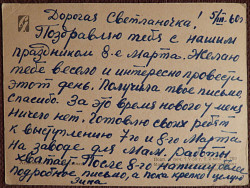 Дорогая Светланочка! 5/III. 60г.
Поздравляю тебя с нашим
праздником 8-е Марта. Желаю
тебе весело и интересно провести
этот день. Получила твое письмо,
спасибо. За это время нового у меня
ничего нет. Готовлю своих ребят
к выступлению 7го и 8го Марта
на заводе для мам. Работы
хватает. После 8-го напишу вам
подробное письмо, а пока крепко целую
Зина.